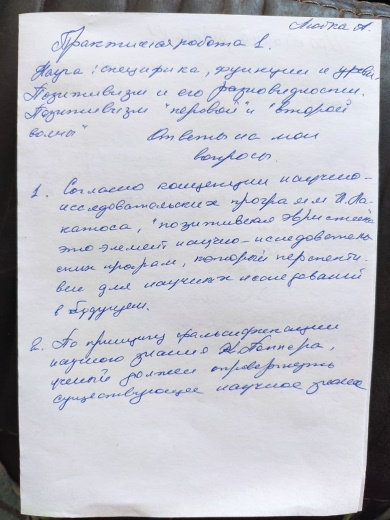 Любка А.
Практичная работа 1.
Наука: специфика, функции и уровни.
Позитивизм и его разновидности.
Позитивизм "первой" и "второй
волны"
Ответы на мои
вопросы.
1. Согласно концепции научно-
исследовательских программ И. Ла-
катоса, "позитивная эвристика
это элемент научно-исследователь
ских програм, который перспекти-
вен для научных исследований
в будущем.
2. По принципу фальсификации
научного знания К. Поппера,
ученый должен опровергнуть
существующее научное знание